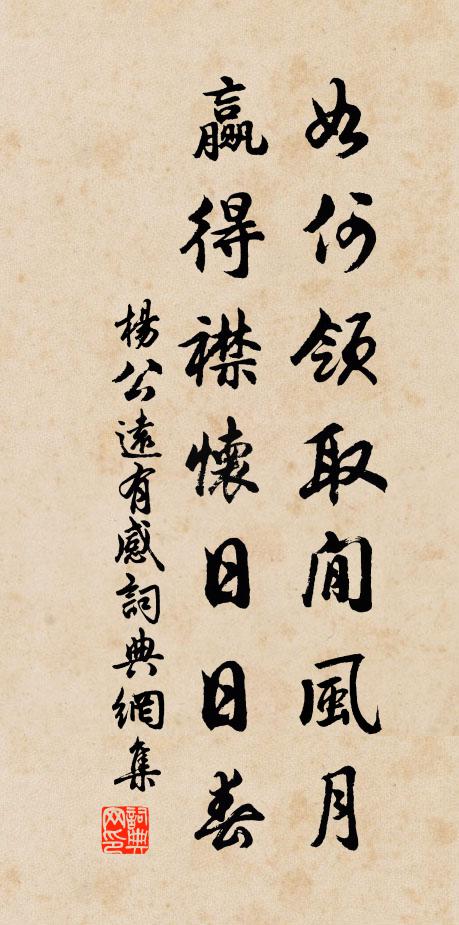 如何領取閒風月
贏得襟懷日日春
楊公遠有感詞典網集
詞典網印